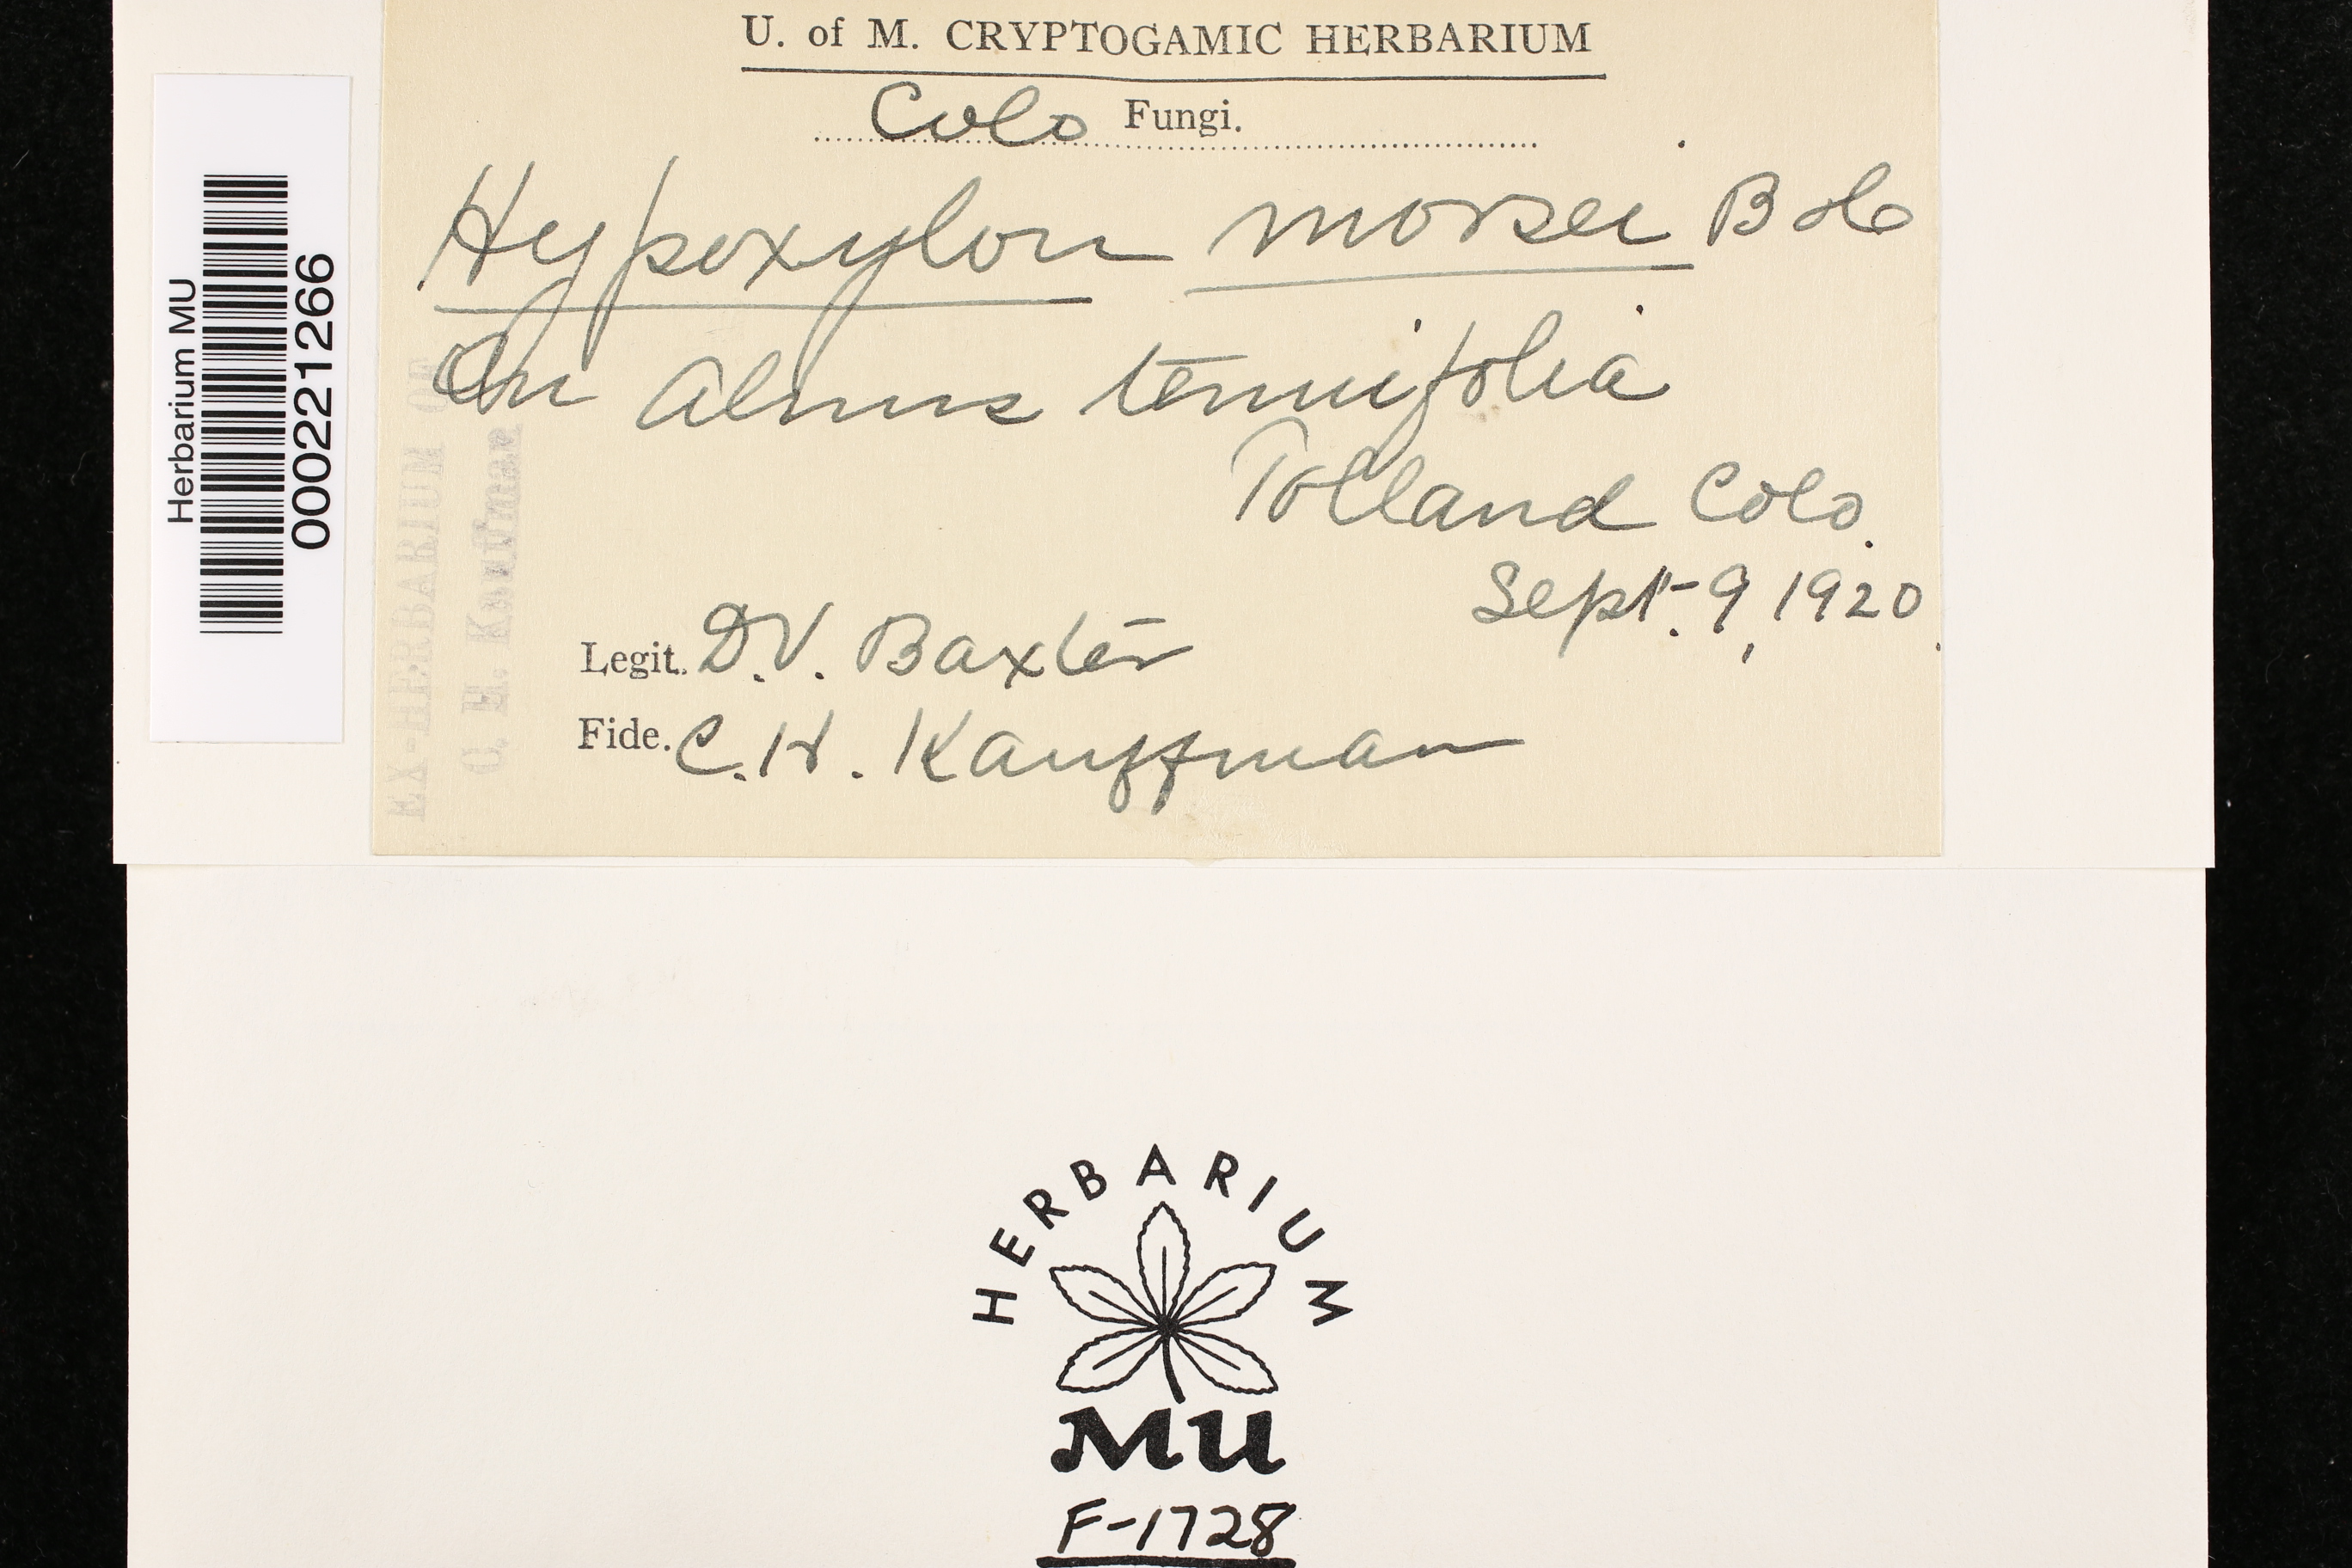 U. of M. CRYPTOGAMIC HERBARIUM
Colo Fungi.
Hypoxylon morsei B &c
On Alnus tenuifolia
Tolland Colo.
Sept. 9, 1920.
Legit. D.V. Baxter
Fide. C.H. Kauffman
EX-HERBARIUM OF
C. H. Kauffman
Herbarium MU
000221266
HERBARIUM
MU
F-1728